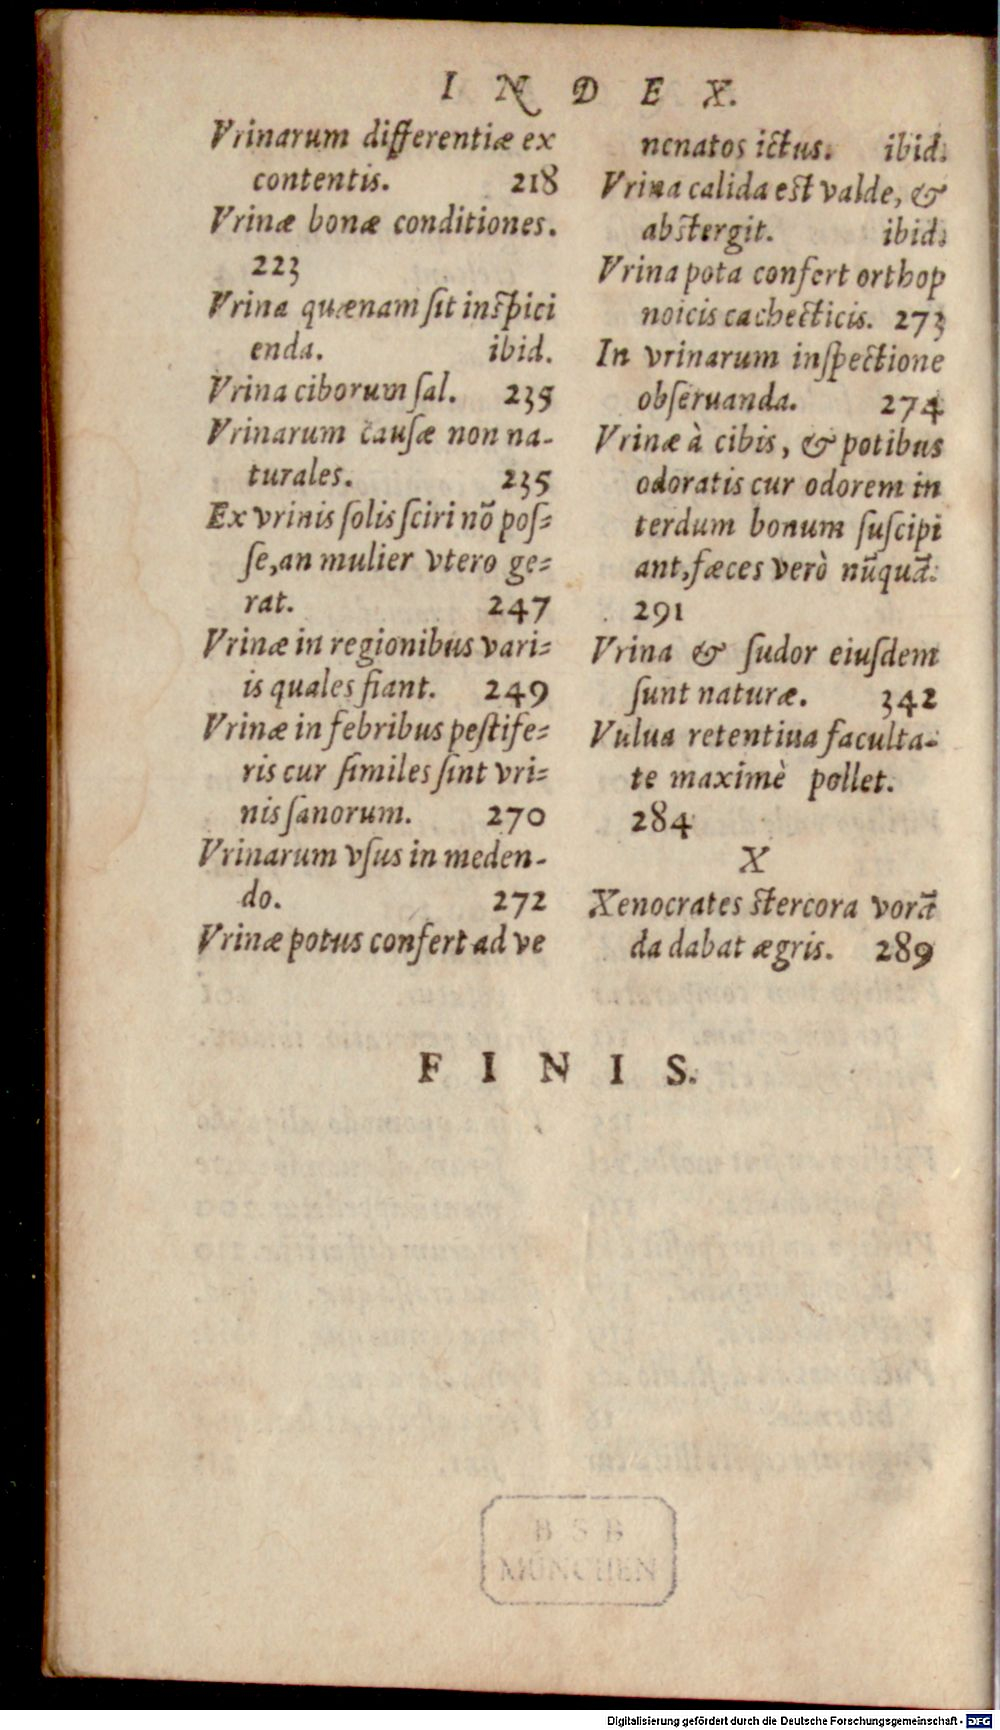 INDEX.
Vrinarum differentiæ ex
contentis. 218
Vrinæ bonæ conditiones.
223
Vrina quænam ſit inſpici
enda. ibid.
Vrina ciborum ſal. 235
Vrinarum cauſæ non na-
turales. 235
Ex vrinis ſolis ſciri nõ poſ=
ſe, an mulier vtero ge=
rat. 247
Vrinæ in regionibus vari=
is quales fiant. 249
Vrinæ in febribus peſtife=
ris cur ſimiles ſint vri=
nis ſanorum. 270
Vrinarum vſus in meden-
do. 272
Vrinæ potus confert ad ve
nenatos ictus. ibid.
Vrina calida eſt valde, &
abſtergit. ibid.
Vrina pota confert orthop
noicis cachecticis. 273
In vrinarum inſpectione
obſeruanda. 274
Vrinæ à cibis, & potibus
odoratis cur odorem in
terdum bonum ſuſcipi
ant, fæces verò nũquã.
291
Vrina & ſudor eiuſdem
ſunt naturæ. 342
Vulua retentiua faculta-
te maximè pollet.
284
X
Xenocrates ſtercora vorã
da dabat ægris. 289
FINIS.
BSB
MÜNCHEN
Digitalisierung gefördert durch die Deutsche Forschungsgemeinschaft - DFG